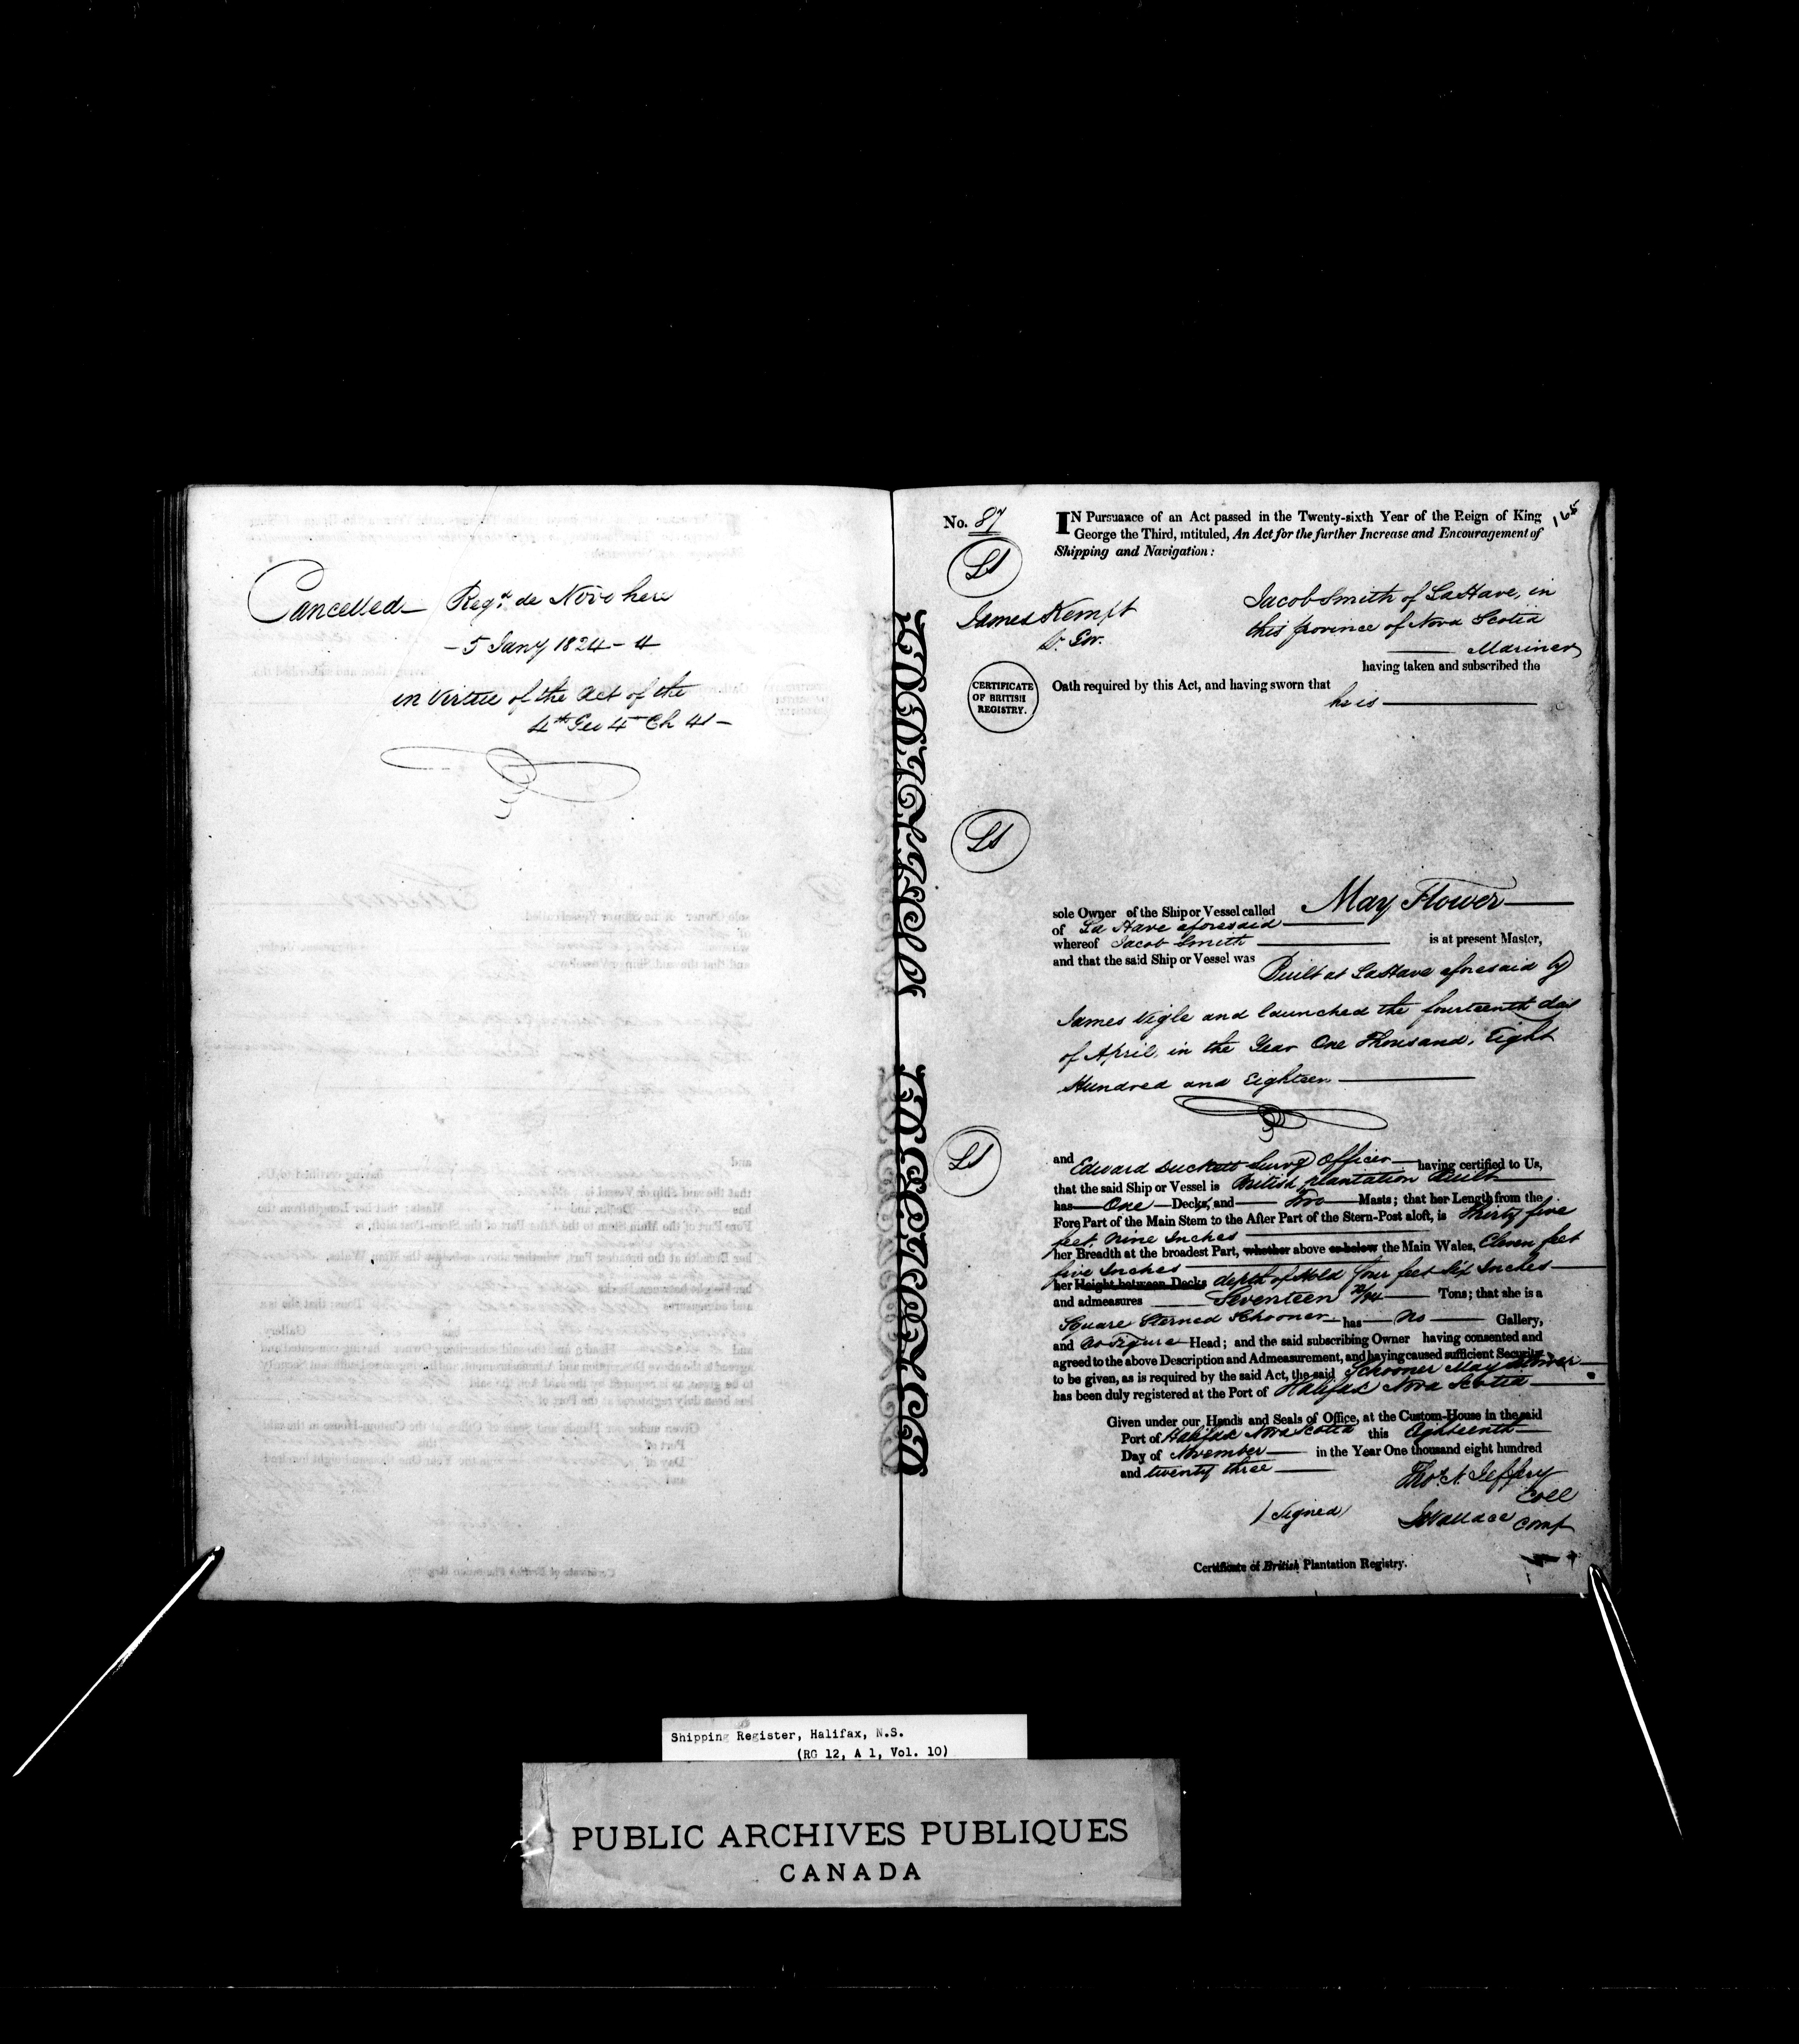 Cancelled Regd. de Novo here
- 5 Jany 1824 - 4
in Virtue of the Act of the
4th Geo 4th Ch 41 -
No. 87
165
IN Pursuance of an Act passed in the Twenty-sixth Year of the Reign of King
George the Third, intituled, An Act for the further Increase and Encouragement of
Shipping and Navigation:
LS
James Kempt
Lt. Gov.
Jacob Smith of LaHave, in
this province of Nova Scotia
Mariner
having taken and subscribed the
CERTIFICATE
OF BRITISH
REGISTRY.
Oath required by this Act, and having sworn that
he is
LS
sole Owner of the Ship or Vessel called May Flower
of La Have aforesaid
whereof Jacob Smith is at present Master,
and that the said Ship or Vessel was Built at LaHave aforesaid by
James Vigle and launched the fourteenth day
of April, in the Year One Thousand, Eight
Hundred and Eighteen
LS
and Edward Duckett Survg Officer having certified to Us,
that the said Ship or Vessel is British plantation Built
has One Decks, and Two Masts; that her Length from the
Fore Part of the Main Stem to the After Part of the Stern-Post aloft, is Thirty five
feet, Nine Inches
her Breadth at the broadest Part, whether above or below the Main Wales, Eleven feet
five Inches
her Height between Decks depth of Hold four feet Six Inches
and admeasures Seventeen /94 Tons; that she is a
Square Sterned Schooner has No Gallery,
and no Figure Head; and the said subscribing Owner having consented and
agreed to the above Description and Admeasurement, and having caused sufficient Security
to be given, as is required by the said Act, the said Schooner May Flower
has been duly registered at the Port of Halifax Nova Scotia
Given under our Hands and Seals of Office, at the Custom-House in the said
Port of Halifax Nova Scotia this Eighteenth
Day of November in the Year One thousand eight hundred
and twenty three
Thos. N. Jeffery
Coll
(Signed) J Wallace Comp
Certificate of British Plantation Registry.
Shipping Register, Halifax, N.S.
(RG 12, A 1, Vol. 10)
PUBLIC ARCHIVES PUBLIQUES
CANADA